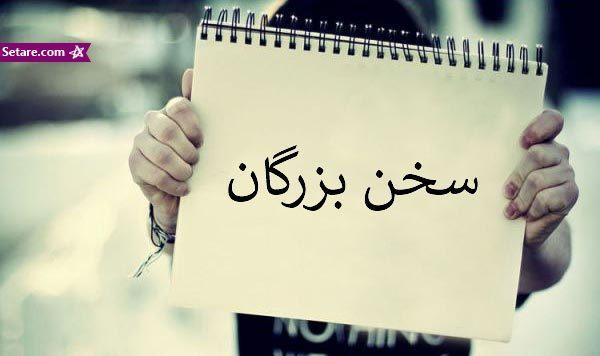 Setare.com
سخن بزرگان
NOTHING